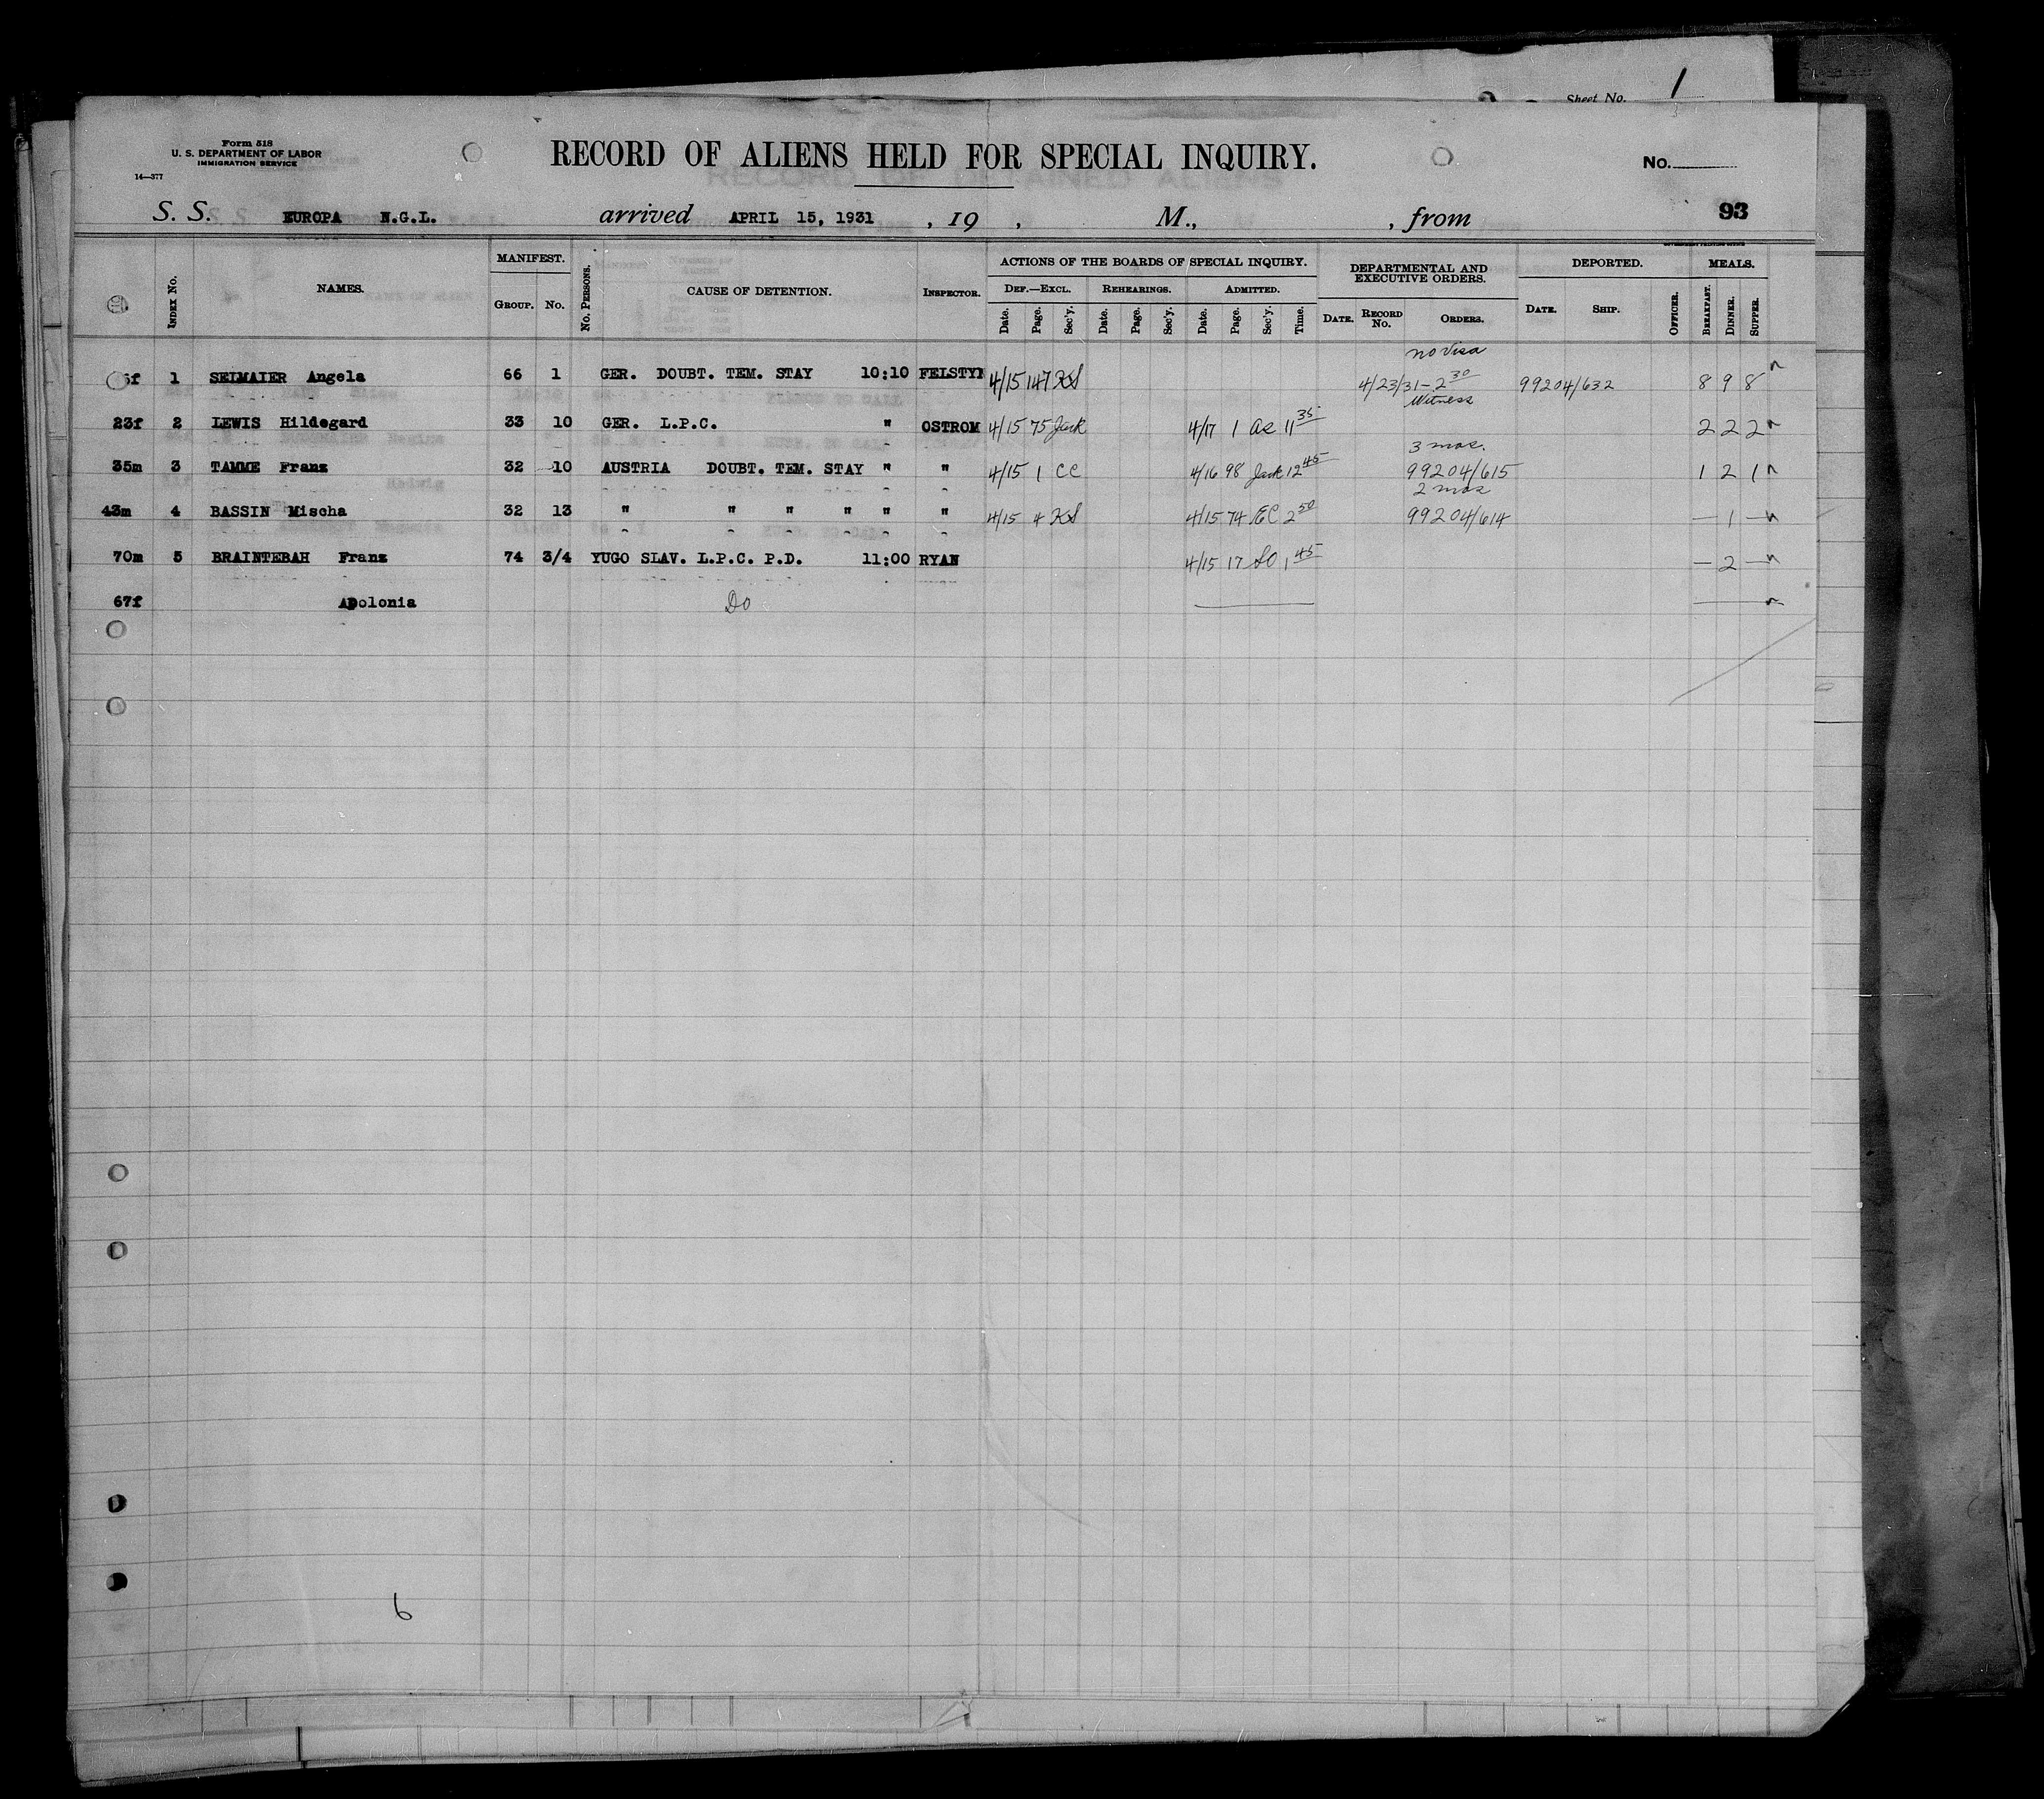 Sheet No. 1
Form 518
U. S. DEPARTMENT OF LABOR
IMMIGRATION SERVICE
14—377
RECORD OF ALIENS HELD FOR SPECIAL INQUIRY.
No.
S. S. EUROPA N.G.L. arrived APRIL 15, 1931 , 19 , M., , from
93
INDEX No. NAMES. MANIFEST. GROUP. No. No. PERSONS. CAUSE OF DETENTION. INSPECTOR. ACTIONS OF THE BOARDS OF SPECIAL INQUIRY. DEF.—EXCL. Date. Page. Sec'y. REHEARINGS. Date. Page. Sec'y. ADMITTED. Date. Page. Sec'y. Time. DEPARTMENTAL AND EXECUTIVE ORDERS. DATE. RECORD No. ORDERS. DEPORTED. DATE. SHIP. OFFICER. MEALS. BREAKFAST. DINNER. SUPPER.
no visa
1 SEIMAIER Angela 66 1 GER. DOUBT. TEM. STAY 10:10 FELSTYN 4/15 147 KS 4/23/31-2 30 99204/632 8 9 8
Witness
23f 2 LEWIS Hildegard 33 10 GER. L.P.C. " OSTROM 4/15 75 Jack 4/17 1 11 35 2 2 2
3 mos.
35m 3 TAMME Franz 32 10 AUSTRIA DOUBT. TEM. STAY " " 4/15 1 CC 4/16 98 Jack 12 45 99204/615 1 2 1
2 mos
43m 4 BASSIN Mischa 32 13 " " " " " " 4/15 4 KS 4/15 74 EC 2 50 99204/614 — 1 —
70m 5 BRAINTEBAH Franz 74 3/4 YUGO SLAV. L.P.C. P.D. 11:00 RYAN 4/15 17 1 45 — 2 —
67f Apolonia Do
6